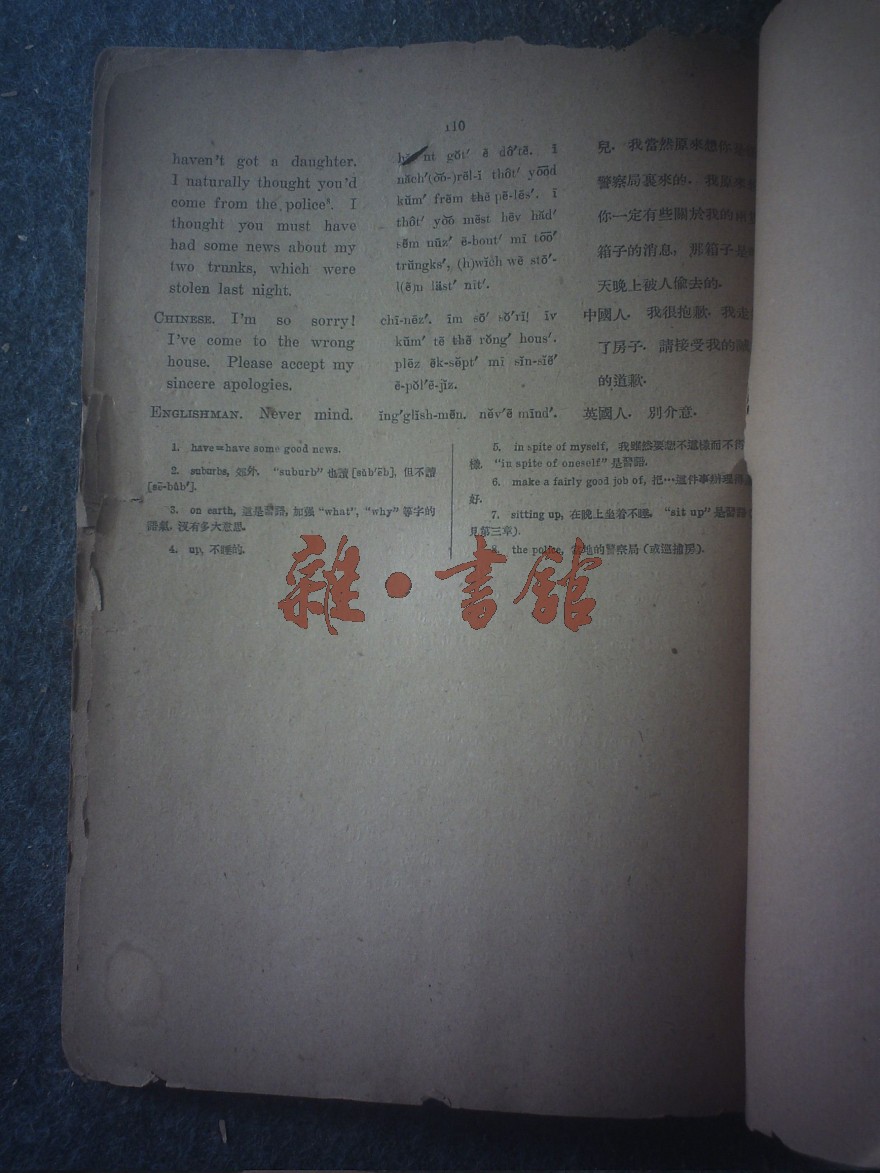 110
haven't got a daughter.
I naturally thought you'd
come from the police⁸. I
thought you must have
had some news about my
two trunks, which were
stolen last night.
CHINESE. I'm so sorry!
I've come to the wrong
house. Please accept my
sincere apologies.
ENGLISHMAN. Never mind.
nt gŏt′ ē dô′tē. ī
năch′(o͝o-)rēl-ĭ thôt′ yo͞od
kŭm′ frēm thē pē-lēs′. ī
thôt′ yo͝o mēst hēv hăd′
sēm nūz′ ē-bout′ mī to͞o′
trŭngks′, (h)wĭch wē stō′-
l(ē)n läst′ nīt′.
chī-nēz′. īm sō′ sŏ′rĭ! īv
kŭm′ tē thē rŏng′ hous′.
plēz ĕk-sĕpt′ mī sĭn-sĭē′
ē-pŏl′ē-jĭz.
ĭng′glĭsh-mēn. nĕv′ē mīnd′.
兒. 我當然原來想你是
警察局裏來的. 我原來
你一定有些關於我的兩
箱子的消息, 那箱子是
天晚上被人偷去的.
中國人. 我很抱歉. 我走
了房子. 請接受我的誠
的道歉.
英國人. 別介意.
1. have=have some good news.
2. suburbs, 郊外. "suburb" 也讀 [sŭb′ēb], 但不讀
[sē-bûb′].
3. on earth, 這是習語, 加强 "what", "why" 等字的
語氣, 沒有多大意思.
4. up, 不睡的.
5. in spite of myself, 我雖然要想不這樣而不得
樣. "in spite of oneself" 是習語.
6. make a fairly good job of, 把…這件事辦理得
好.
7. sitting up, 在晚上坐着不睡. "sit up" 是習語
見第三章).
8. the police, 當地的警察局 (或巡捕房).
雜·書館